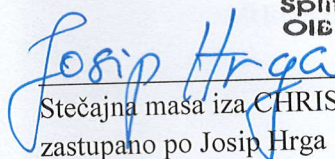 Split
OIB
Josip Hrga
Stečajna masa iza CHRIS
zastupano po Josip Hrga